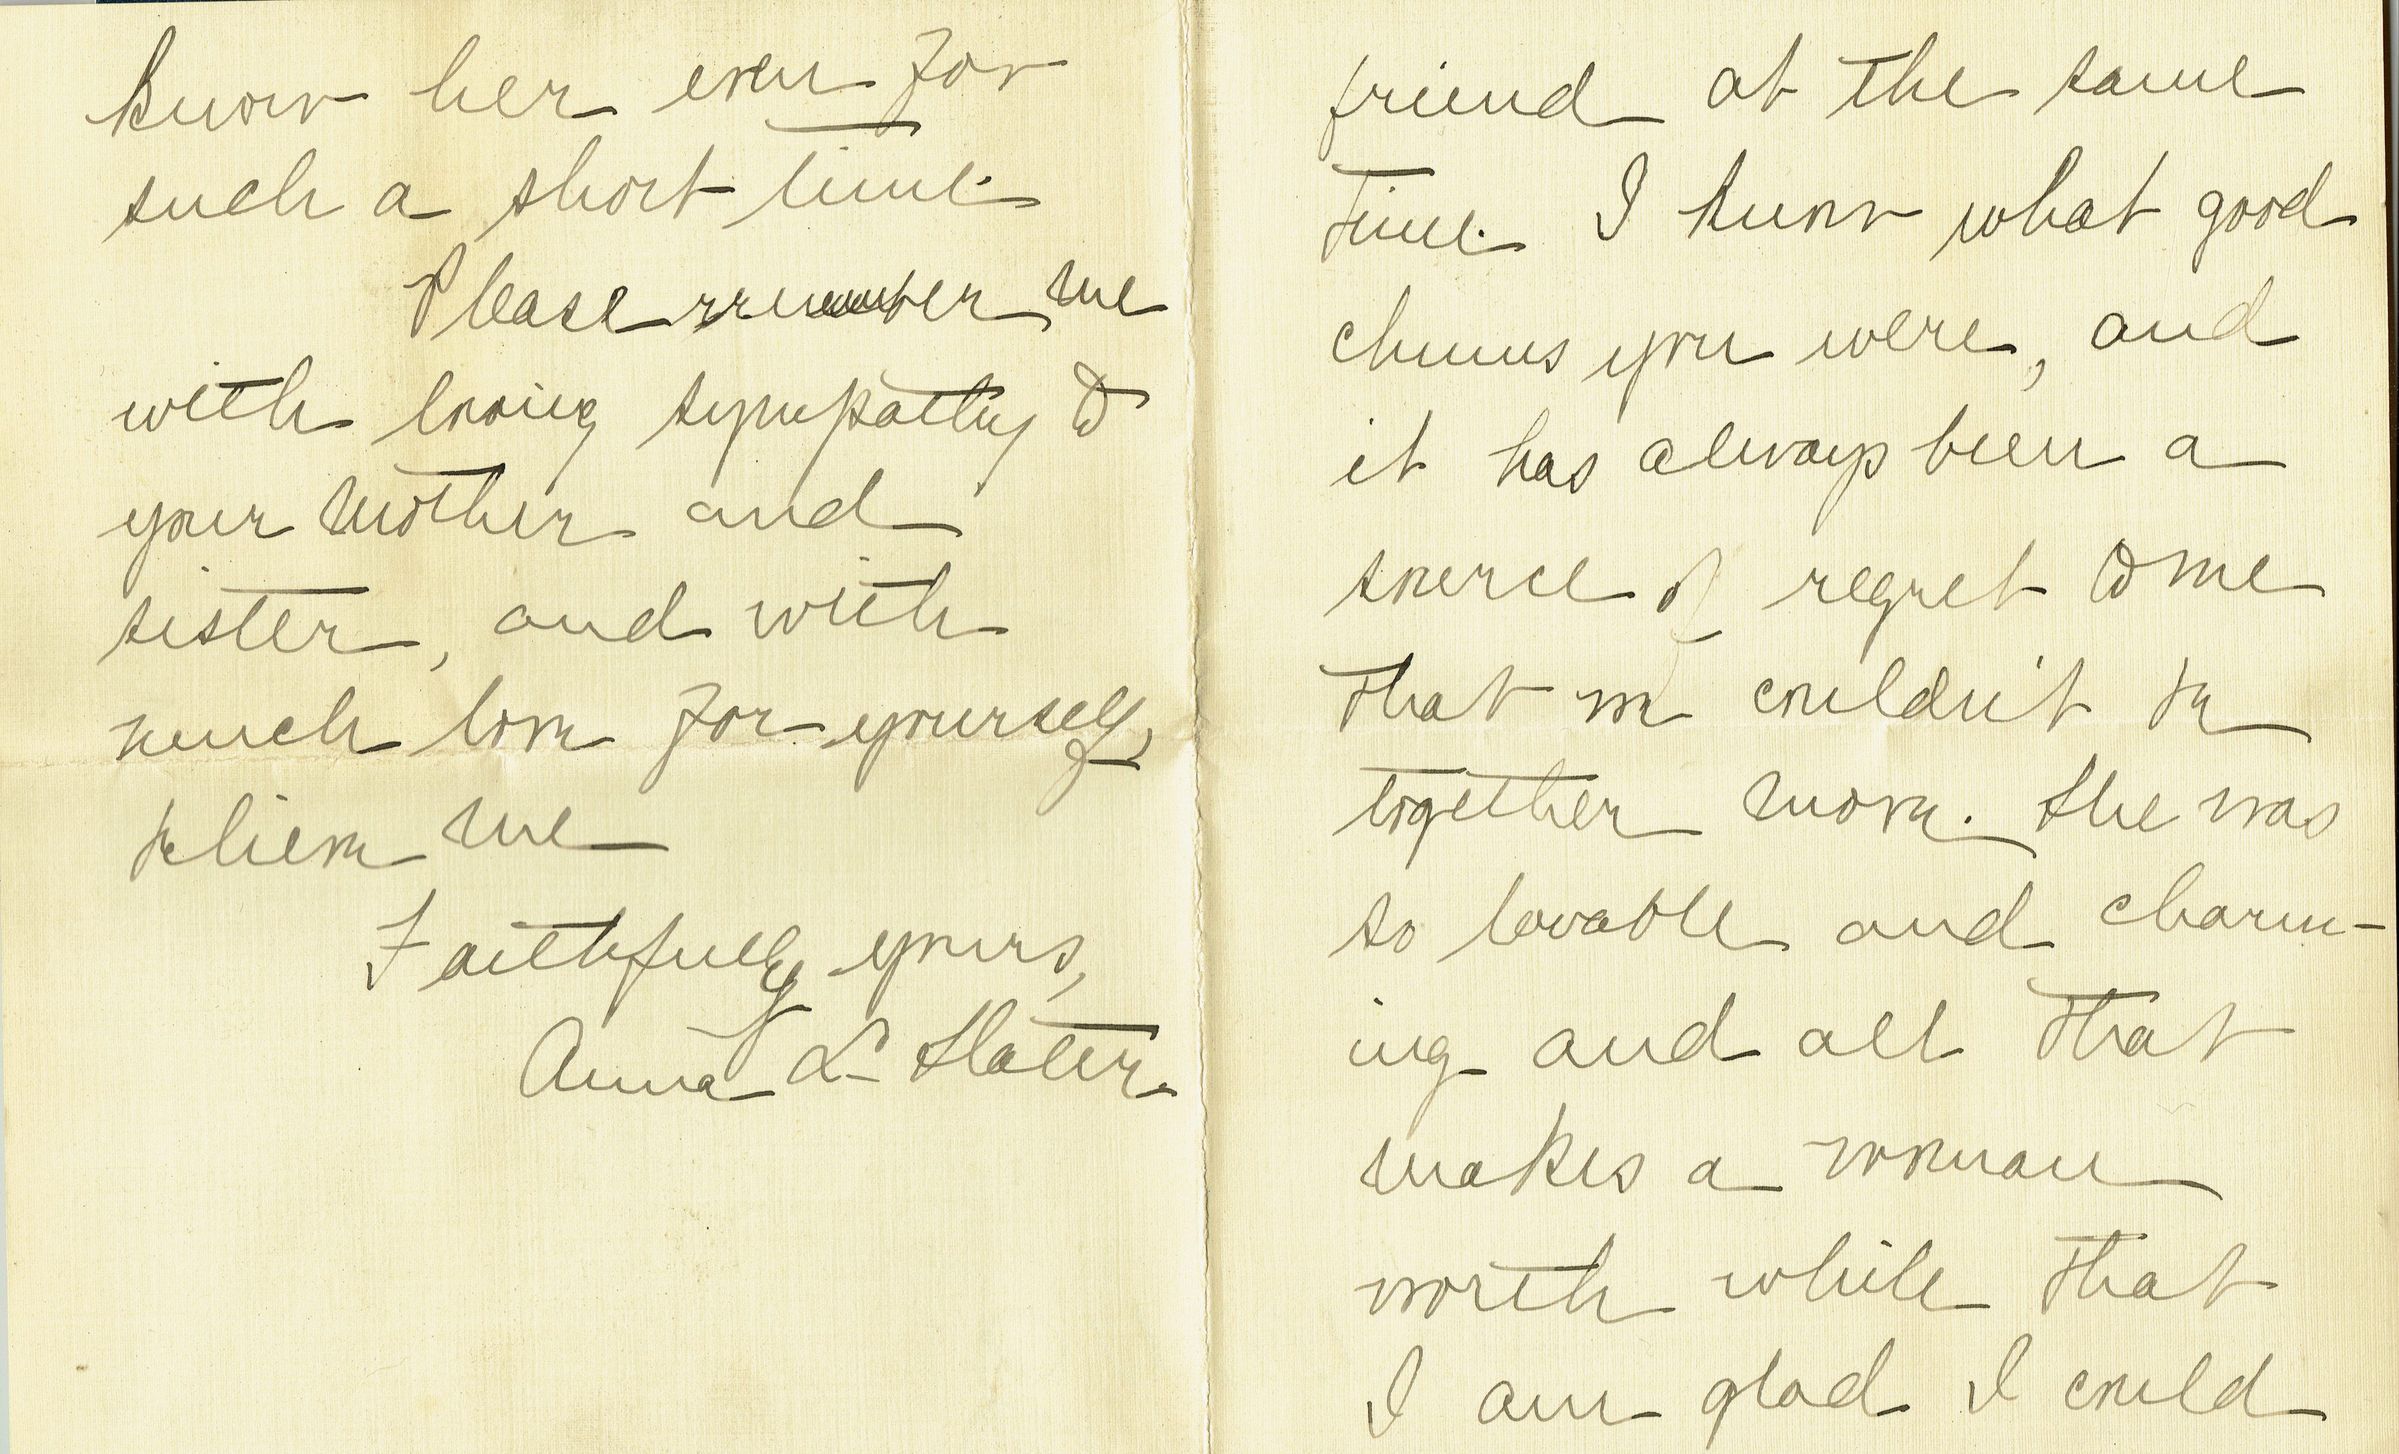 friend at the same
time. I know what good
chums you were, and
it has always been a
source of regret to me
that we couldn't be
together more. She was
so lovable and charm-
ing and all that
makes a woman
worth while that
I am glad I could
know her even for
such a short time.
Please remember me
with loving sympathy to
your mother and
sister, and with
much love for yourself,
believe me
Faithfully yours,
Anna L. Slater.